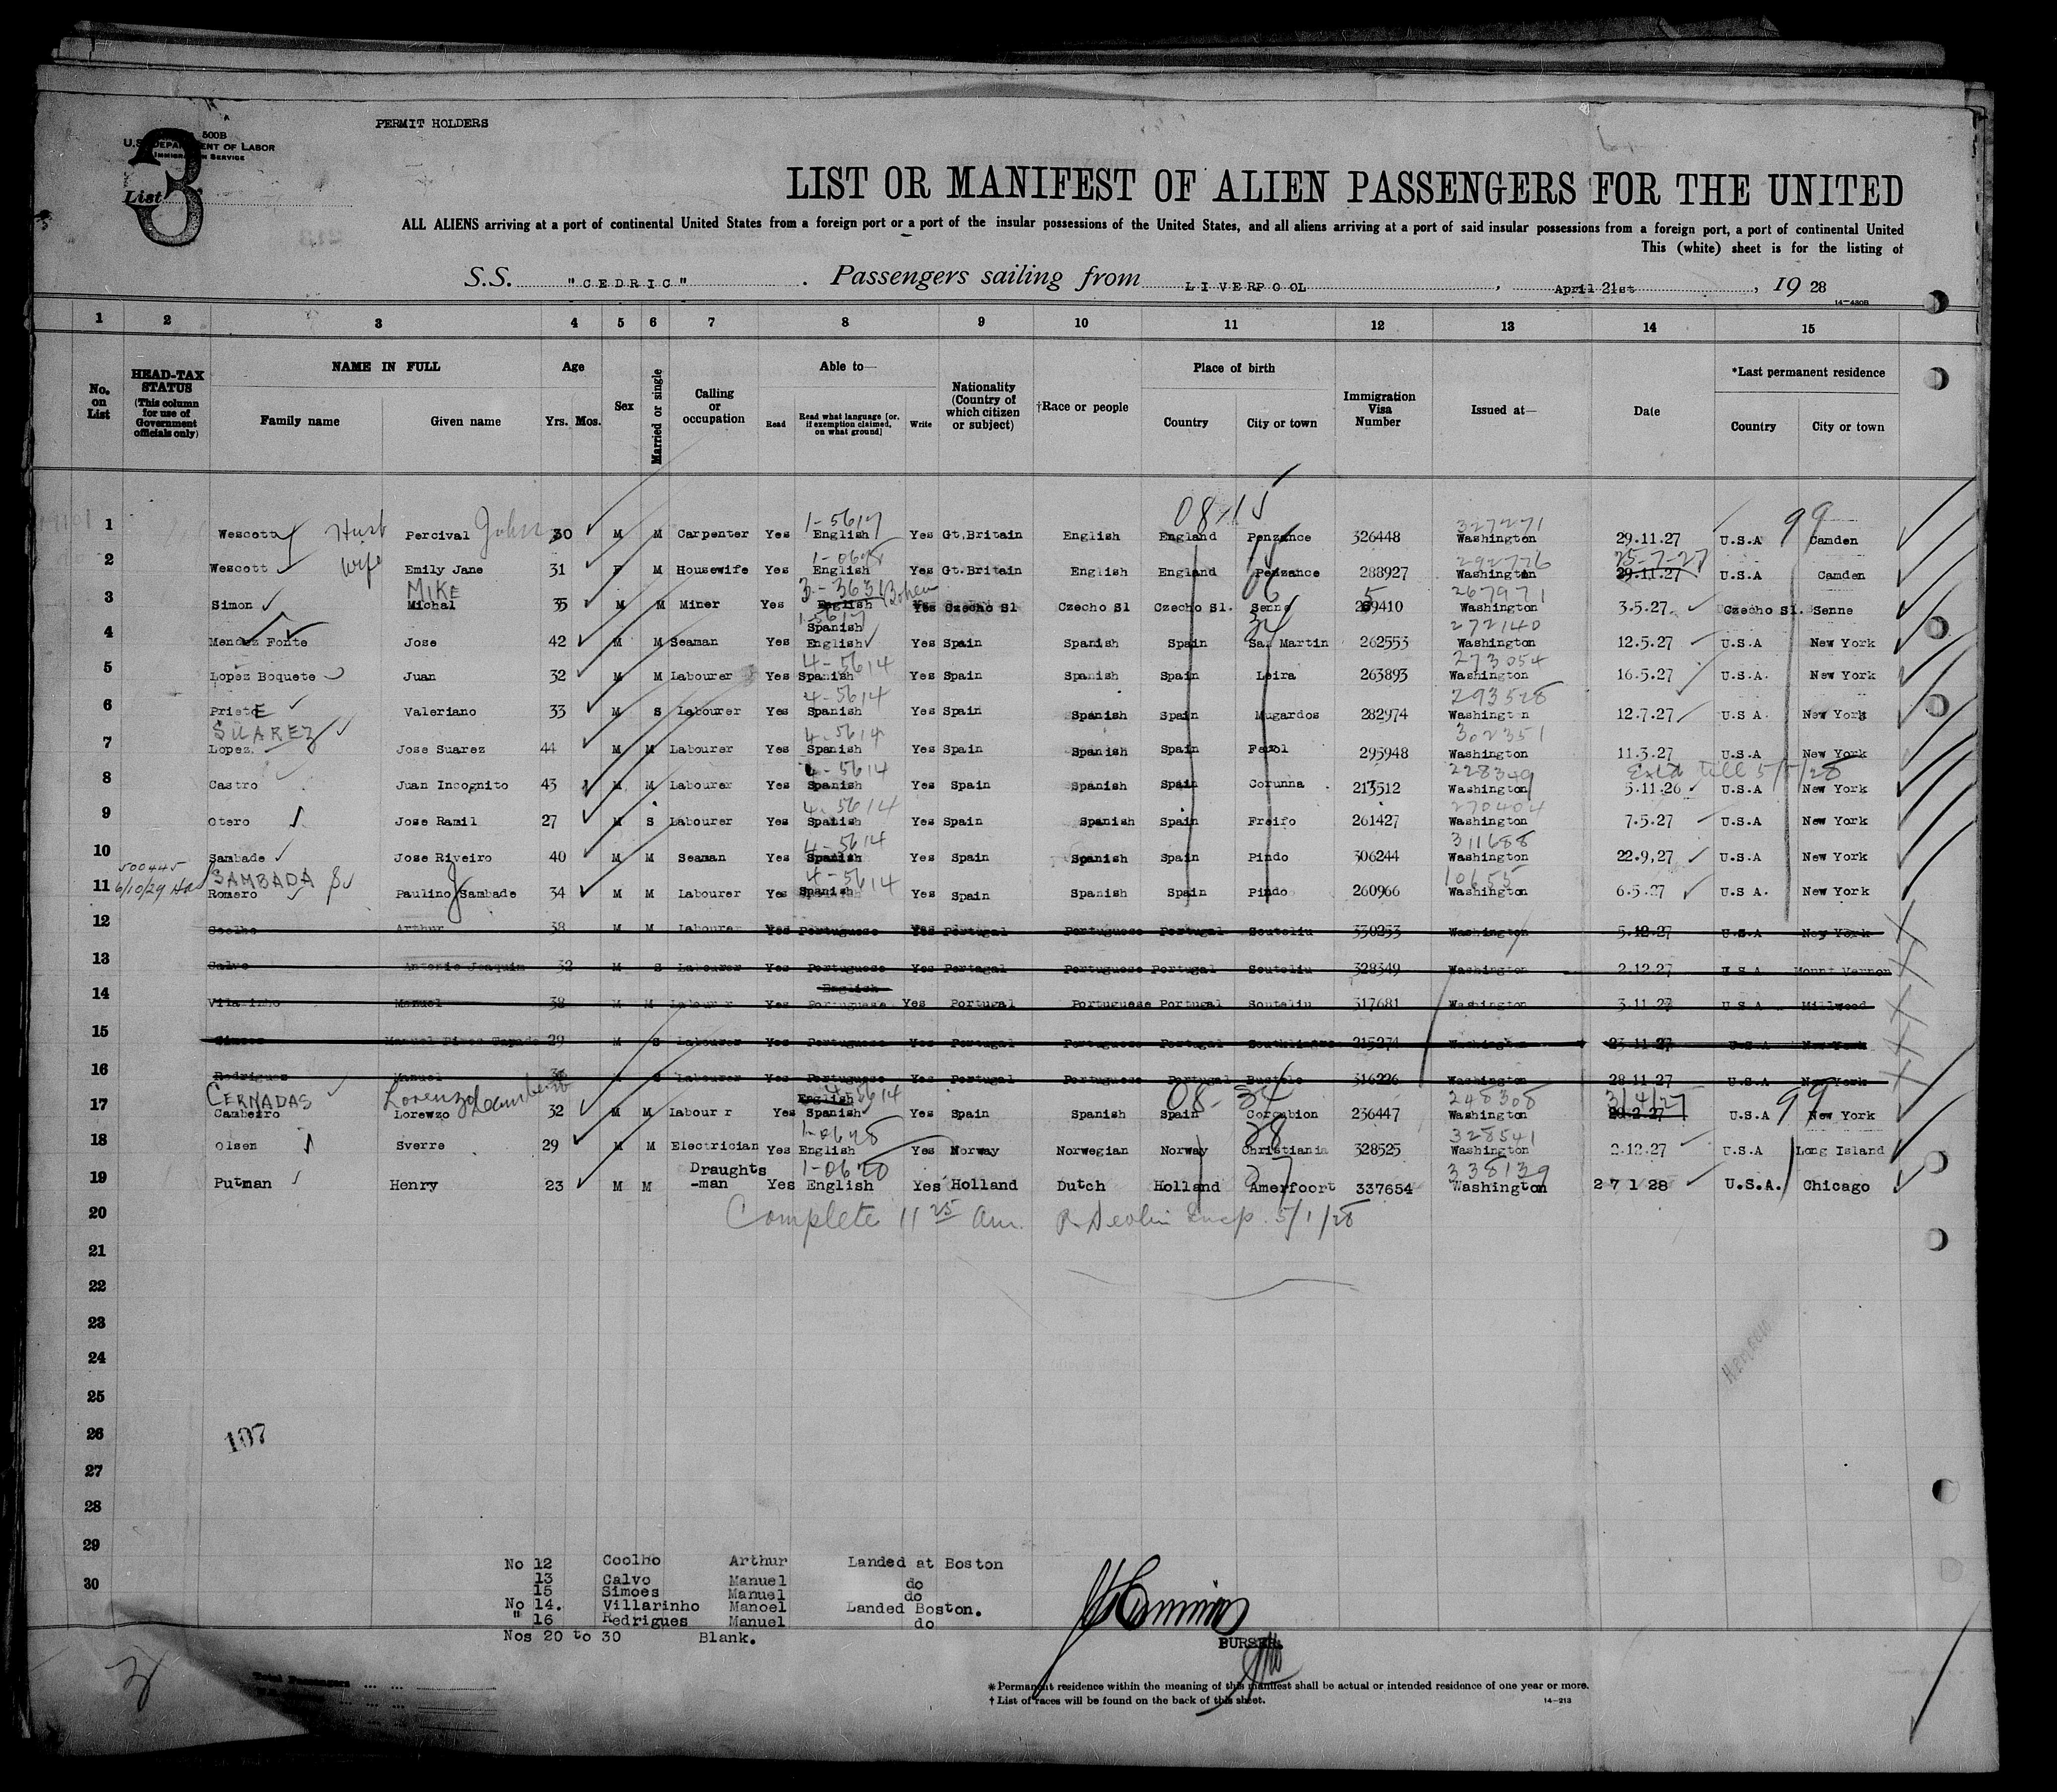 PERMIT HOLDERS
500B
U.S. DEPARTMENT OF LABOR
IMMIGRATION SERVICE
List 3
LIST OR MANIFEST OF ALIEN PASSENGERS FOR THE UNITED
ALL ALIENS arriving at a port of continental United States from a foreign port or a port of the insular possessions of the United States, and all aliens arriving at a port of said insular possessions from a foreign port, a port of continental United
This (white) sheet is for the listing of
S.S. "CEDRIC" . Passengers sailing from LIVERPOOL , April 21st , 19 28
14-430B
1 2 3 4 5 6 7 8 9 10 11 12 13 14 15
No. on List
HEAD-TAX STATUS (This column for use of Government officials only)
NAME IN FULL Family name Given name
Age Yrs. Mos.
Sex
Married or single
Calling or occupation
Able to— Read Read what language [or, if exemption claimed, on what ground] Write
Nationality (Country of which citizen or subject)
†Race or people
Place of birth Country City or town
Immigration Visa Number
Issued at—
Date
*Last permanent residence Country City or town
08-15 99
1-5617 327271
1 Wescott Husb Percival John 30 M M Carpenter Yes English Yes Gt.Britain English England Penzance 326448 Washington 29.11.27 U.S.A Camden
292776 25-7-27
2 Wescott Wife Emily Jane 31 F M Housewife Yes English Yes Gt.Britain English England Penzance 288927 Washington 29.11.27 U.S.A Camden
MIKE 3-3631 Bohem 06 267971
3 Simon Michal 35 M M Miner Yes English Yes Czecho Sl Czecho Sl Czecho Sl. Senne 259410 Washington 3.5.27 Czecho Sl. Senne
1-5617 Spanish 34 272140
4 Mendez Fonte Jose 42 M M Seaman Yes English Yes Spain Spanish Spain San Martin 262553 Washington 12.5.27 U.S.A New York
4-5614 273054
5 Lopez Boquete Juan 32 M M Labourer Yes Spanish Yes Spain Spanish Spain Leira 263893 Washington 16.5.27 U.S.A. New York
4-5614 293528
6 PrietE Valeriano 33 M S Labourer Yes Spanish Yes Spain Spanish Spain Mugardos 282974 Washington 12.7.27 U.S A. New York
SUAREZ 4-5614 302351
7 Lopez. Jose Suarez 44 M M Labourer Yes Spanish Yes Spain Spanish Spain Ferol 295948 Washington 11.3.27 U.S.A New York
4-5614 228349 Extd till 5/5/28
8 Castro Juan Incognito 43 M M Labourer Yes Spanish Yes Spain Spanish Spain Corunna 213512 Washington 5.11.26 U.S.A New York
4-5614 270404
9 Otero Jose Ramil 27 M S Labourer Yes Spanish Yes Spain Spanish Spain Freifo 261427 Washington 7.5.27 U.S.A New York
4-5614 311688
10 Sambade Jose Riveiro 40 M M Seaman Yes Spanish Yes Spain Spanish Spain Pindo 306244 Washington 22.9,27 U.S.A New York
500445 SAMBADA 4-5614 10655
11 6/10/29 Romero Paulino Sambade 34 M M Labourer Yes Spanish Yes Spain Spanish Spain Pindo 260966 Washington 6.5.27 U.S A. New York
12 Coelho Arthur 38 M M Labourer Yes Portuguese Yes Portugal Portuguese Portugal Souteliu 330253 Washington 5.12.27 U.S.A New York
13 Calvo Antonio Joaquim 32 M S Labourer Yes Portuguese Yes Portugal Portuguese Portugal Souteliu 328349 Washington 2.12.27 U.S.A Mount Vernon
English
14 Vilarinho Manuel 38 M M Labourer Yes Portuguese Yes Portugal Portuguese Portugal Souteliu 317681 Washington 3.11.27 U.S.A Millwood
15 Simoes Manuel 29 M S Labourer Yes Portuguese Yes Portugal Portuguese Portugal 215274 Washington 23.11.27 U.S.A New York
16 Rodrigues Manuel M S Labourer Yes Portuguese Yes Portugal Portuguese Portugal Bustelo 316226 Washington 28.11.27 U.S.A New York
CERNADAS Lorenzo English 5614 08-34 248308 3/4/27 99
17 Cambeiro Lorewzo 32 M M Labour r Yes Spanish Yes Spain Spanish Spain Corcubion 236447 Washington U.S.A New York
28 328541
18 Olsen Sverre 29 M M Electrician Yes English Yes Norway Norwegian Norway Christiania 328525 Washington 2.12.27 U.S.A Long Island
Draughts 27 338139
19 Putman Henry 23 M M -man Yes English Yes Holland Dutch Holland Amerfoort 337654 Washington 27 1 28 U.S.A. Chicago
20 Complete 11 25 am. P. Devlin Insp. 5/1/28
21
22
23
24
25
26
107
27
28
29
30
No 12 Coolho Arthur Landed at Boston
13 Calvo Manuel do
15 Simoes Manuel do
No 14. Villarinho Manoel Landed Boston.
" 16 Redrigues Manuel do
Nos 20 to 30 Blank.
PURSER.
Total Passengers ... ...
*Permanent residence within the meaning of this manifest shall be actual or intended residence of one year or more.
†List of races will be found on the back of this sheet.
14-213